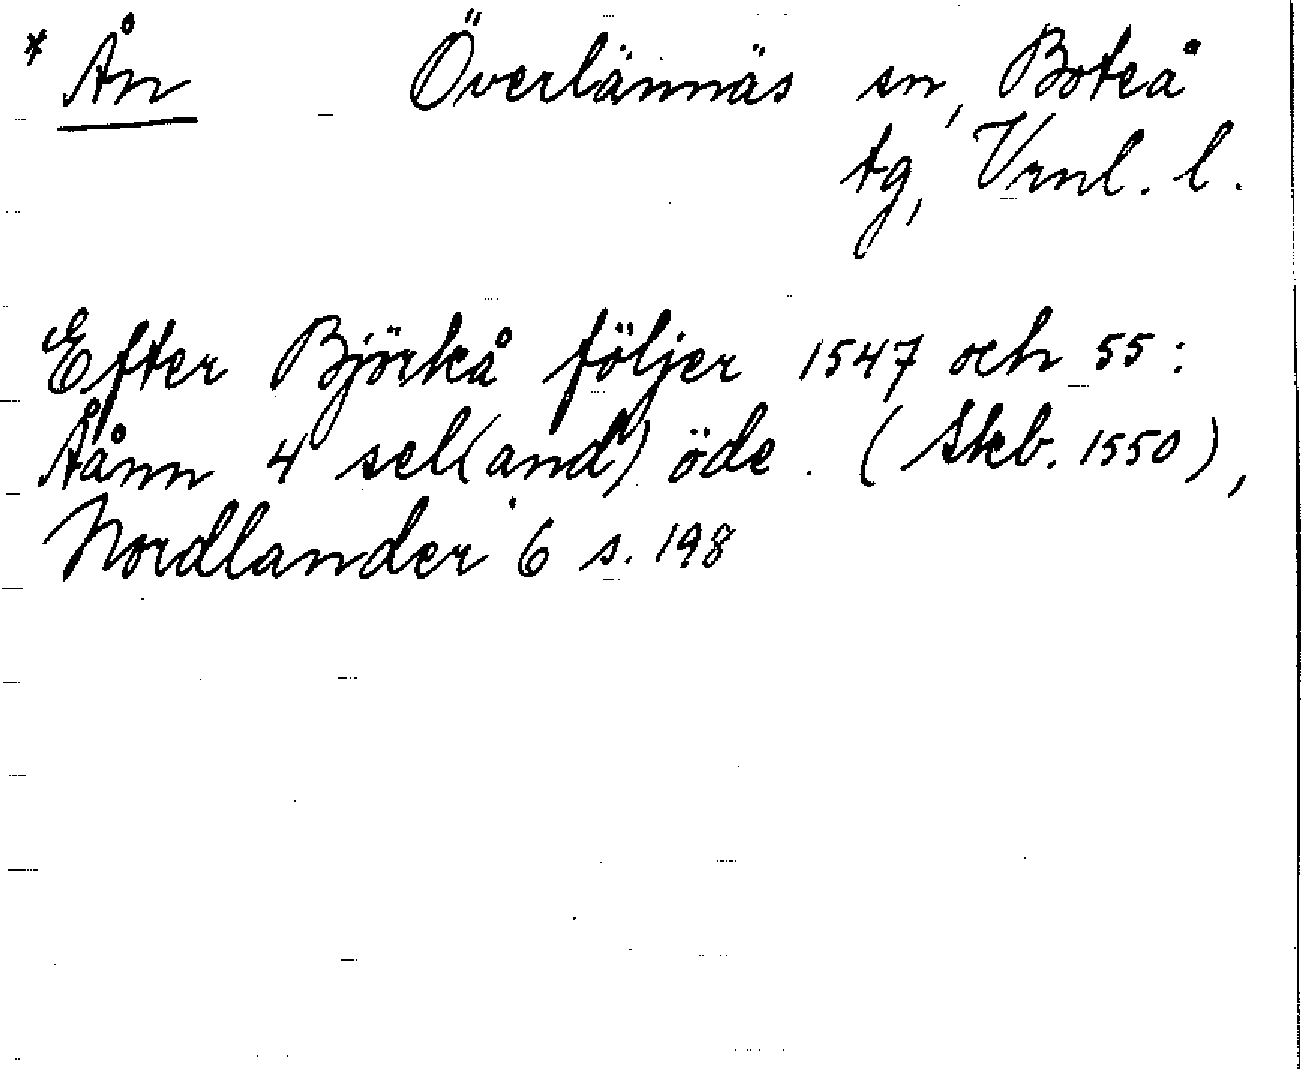 * Ån Överlännäs sn, Boteå
tg, Vrnl. l.
Efter Björkå följer 1547 och 55:
Åånn 4 sel(and) öde. (Skb. 1550),
Nordlander 6 s. 198